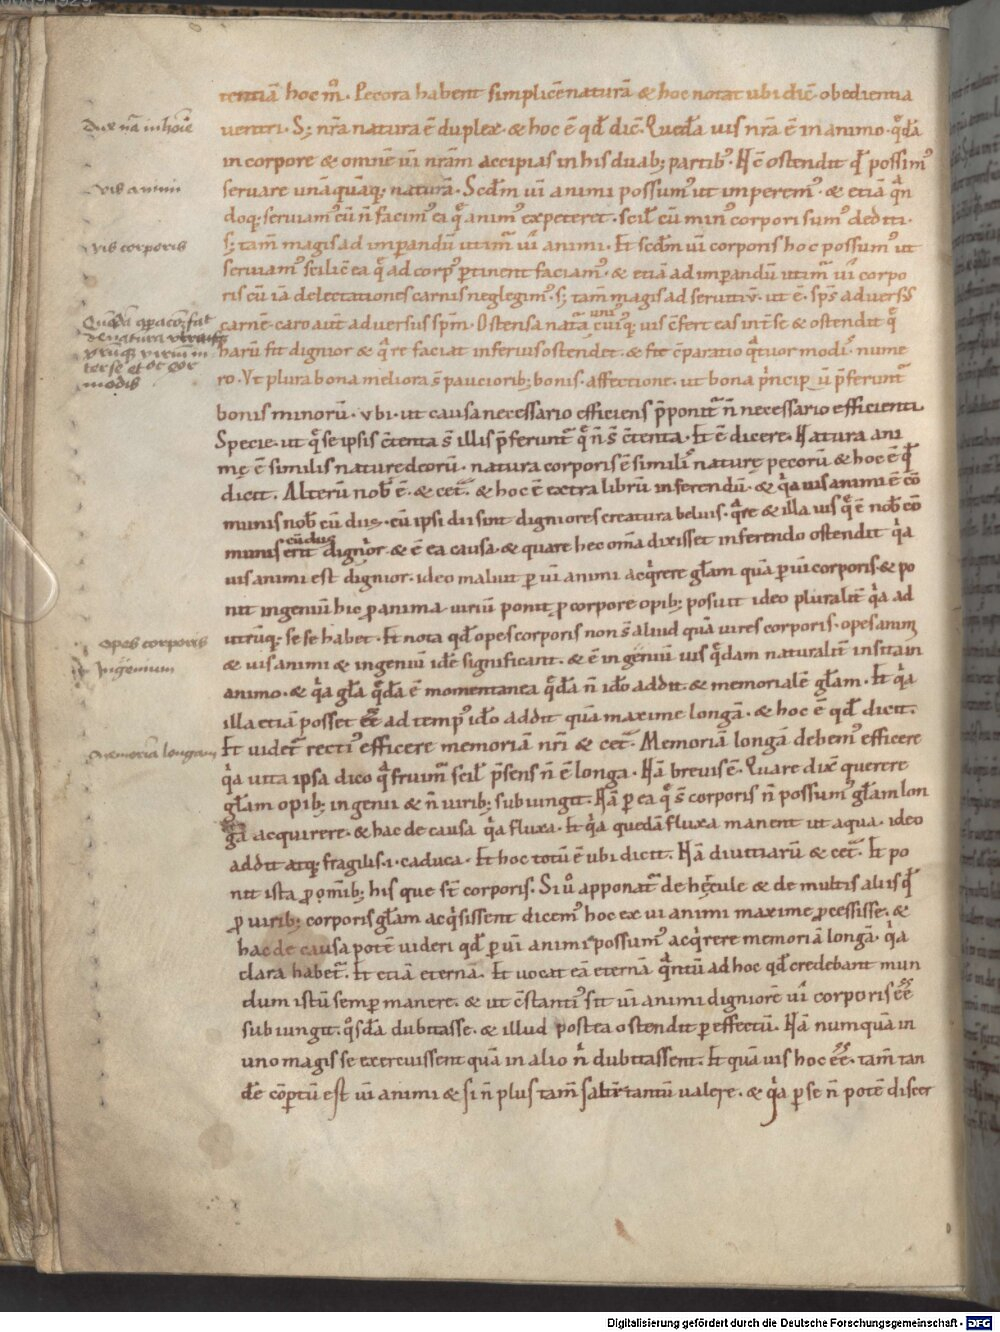 tentiā hoc m̄. Pecora habent simplicē naturā & hoc notat ubi dic̄ obedientia
Due nā in hoīe
uentri. S; nr̄a natura ē duplex. & hoc ē qđ dic̄. Quedā uis nr̄a ē in animo. qͣdā
in corpore & omnē uī nr̄am accipias in his duab; partib;. H ē ostendit qđ possim᷒
vis animi
seruare unāquāq; naturā. Scdm̄ uī animi possum᷒ ut imperem᷒. & etiā qn̄
doq; seruiam᷒ cū n̄ facim᷒ ea qͣ anim᷒ expeteret. scil̄ cū min᷒ corpori sum᷒ dediti.
vis corporis
s; tam̄ magis ad imperandū utim̄ ui animi. Et scdm̄ uī corporis hoc possum᷒ ut
seruiam᷒ scilic̄ ea qͣ ad corp᷒ ꝑtinent faciam᷒. & etiā ad imperandū utim̄ ui corpo
ris cū iā delectationes carnis neglegim᷒. s; tam̄ magis ad seruitiū. ut ē. sp̄s aduersus
carnē. caro aut̄ aduersus sp̄m. Ostensa natā cuiusq; uis c̄fert eas int̄ se & ostendit qͣ
harū sit dignior & qͣre faciat inferius ostendet. & fit c̄paratio qͣtuor modis. nume
ro. Vt plura bona meliora s̄ paucioribus; bonis. affectione. ut bona p̄ncipū p̄feruntᷣ
bonis minorū. vbi. ut causa necessario efficiens p̄ponitᷣ n̄ necessario efficienti.
Specie. ut qͣ se ipsis c̄tenta s̄ illis p̄feruntᷣ qͣ n̄ s̄ c̄tenta. Et ē dicere. Natura ani
mę ē similis nature deorū. natura corporis ē similis naturę pecorū & hoc ē qđ
dicit. Alterū nob̄ ē. & cet̄. & hoc ē extra librū inferendū. & qͥa uis animi ē cō
munis nob̄ cū diis. cū ipsi dii sint digniores creatura beluis. qͣre & illa uis qͣ ē nob̄ cō
munis cū diis erit dignior. & ē ea causa. & quare hec om̄a dixisset inferendo ostendit qͥa
uis animi est dignior. ideo maluit ꝑ uī animi acqͥrere gl̄am quā ꝑ uī corporis. & po
nit ingeniū hic ꝓ anima. uiriū ponit ꝓ corpore opib; posuit ideo pluralit̄ qͥa ad
opes corporis
utrūq; sese habet. Et nota qđ opes corporis non s̄ aliud quā uires corporis. opes animi
ingenium
& uis animi & ingeniū idē significant. & ē ingeniū uis qͣdam naturalit̄ insita in
animo. & qͥa gl̄a qͣdā ē momentanea qͣdā n̄ ido addit. & memorialē gl̄am. Et qͥa
illa etiā posset ad temp᷒ ido addit quā maxime longā. & hoc ē qđ dicit.
memoriā longam
Et uidetᷣ recti᷒ efficere memoriā nr̄i & cet̄. Memoriā longā debem᷒ efficere
qͥa uita ipsa dico qͣ fruimᷣ scil̄ p̄sens n̄ ē longa. Nā breuis ē. Quare dix̄ querere
gl̄am opib; ingenii & n̄ uirib; subiungit. Nā ꝑ ea qͣ s̄ corporis n̄ possum᷒ gl̄am lon
gā acquirere. & hac de causa qͥa fluxa. Et qͥa quedā fluxa manent ut aqua. ideo
addit atq; fragilis .i. caduca. Et hoc totū ē ubi dicit. Nā diuitiarū & cet̄. Et po
nit ista ꝓ omīb; his que st̄ corporis. Si u᷒ apponatᷣ de hęrcule & de multis aliis qđ
ꝓ uirib; corporis gl̄am acqͥsissent dicem᷒ hoc ex ui animi maxime ꝓcessisse. &
hac de causa potē uideri qđ ꝑ uī animi possum᷒ acqͥrere memoriā longā. qͥa
clara habetᷣ. Et etiā eternā. Et uocat eā eternā qͣntū ad hoc qđ credebant mun
dum istū semꝑ manere. & ut c̄stanti᷒ sit uī animi digniorē ui corporis ēē
subiungit. qͦsdā dubitasse. & illud postea ostendit ꝑ effectū. Nā numquā in
uno magis se exercuissent quā in alio n̄ dubitassent. Et quā uis hoc ēē. tam̄ tan
dē cōptū est uī animi & si n̄ plus tam̄ tantū ualere. & qͥa ꝑ se n̄ potē discer
Digitalisierung gefördert durch die Deutsche Forschungsgemeinschaft - DFG